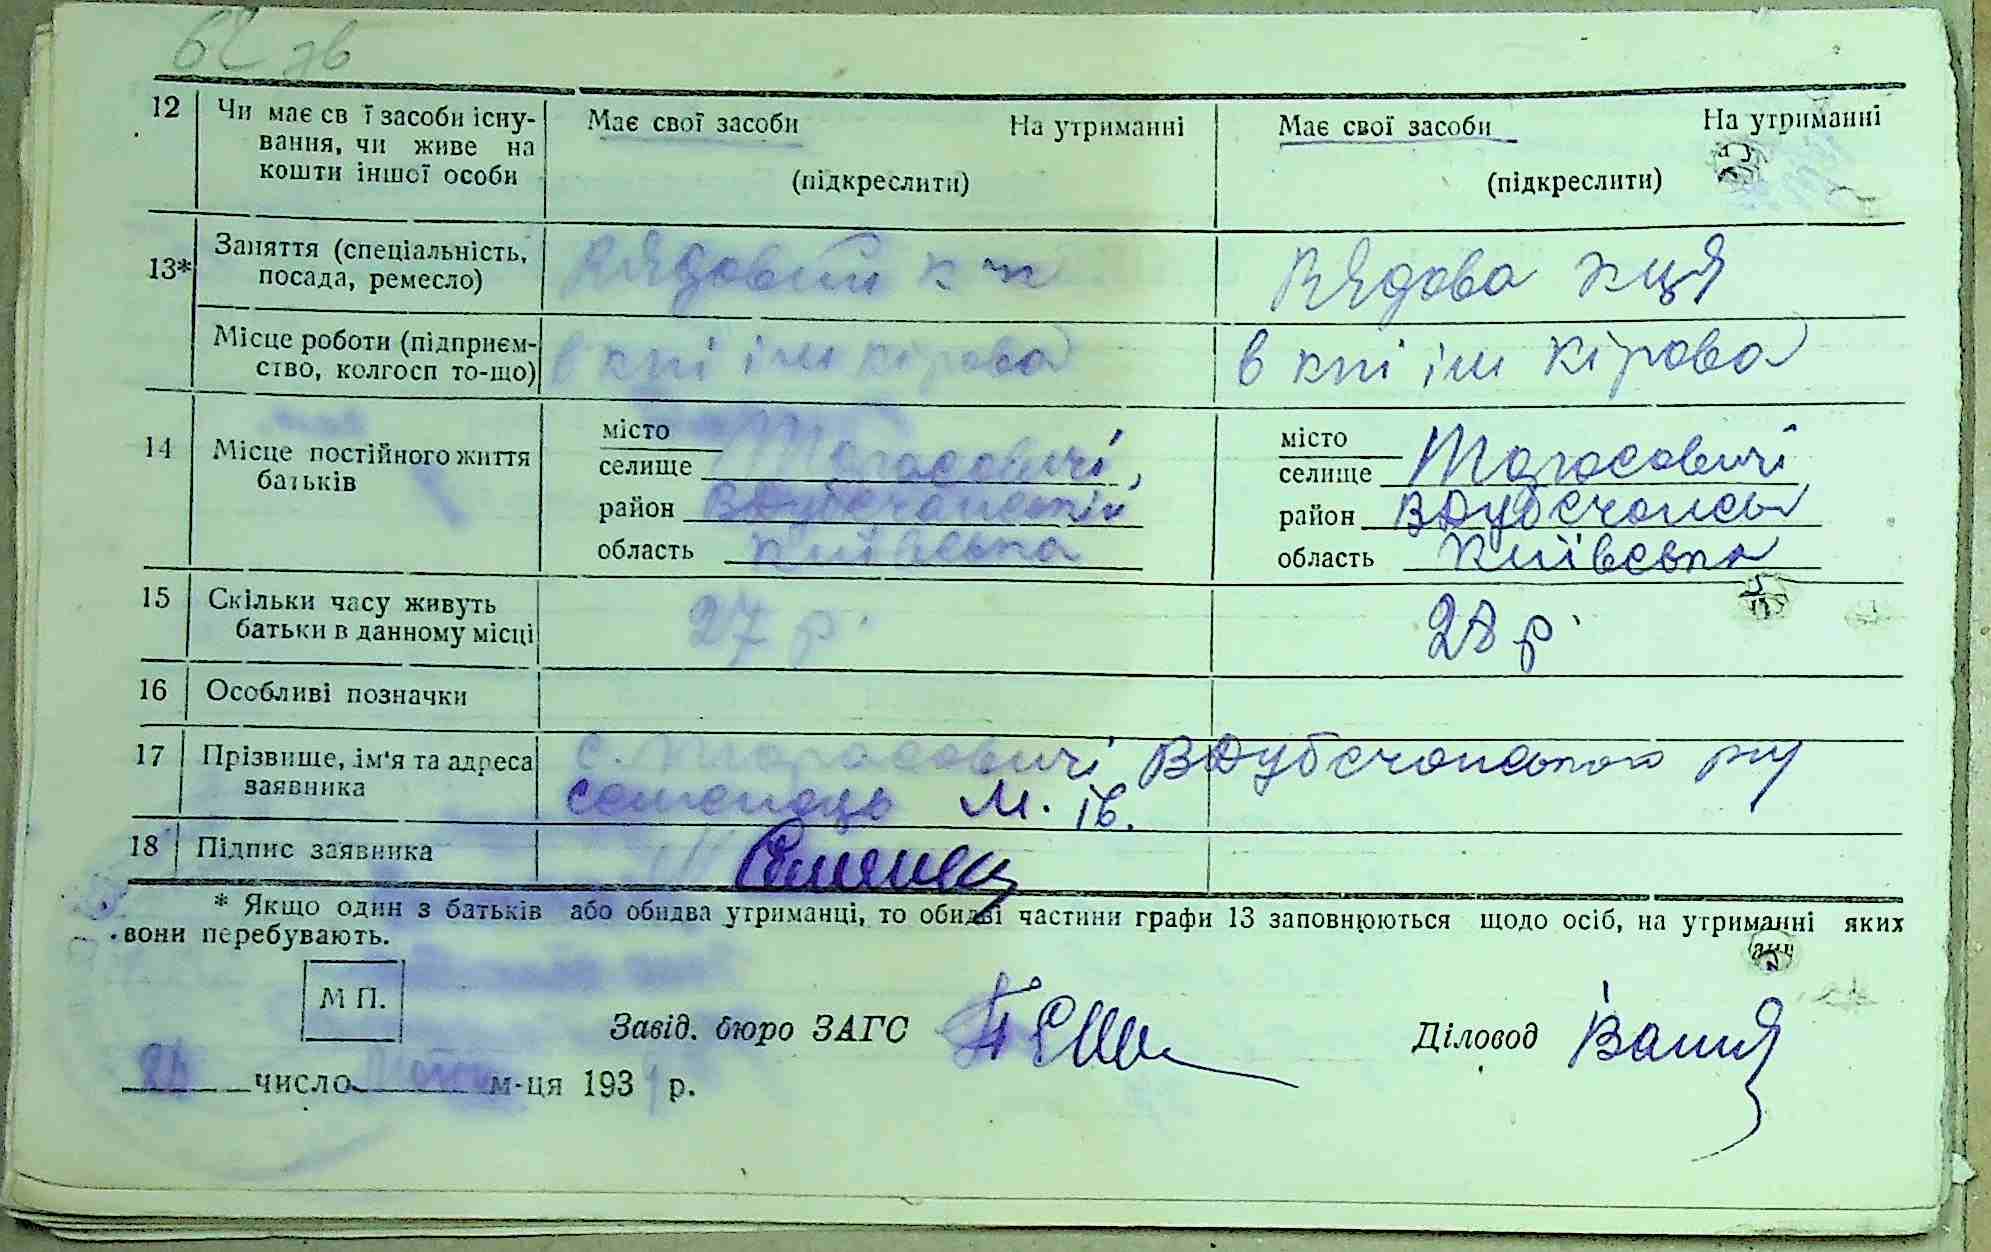 62 зв
12 Чи має св ї засоби існу- Має свої засоби На утриманні Має свої засоби На утриманні
вання, чи живе на
кошти іншої особи (підкреслити) (підкреслити)
13* Заняття (спеціальність, Рядовий к-к Рядова к-ця
посада, ремесло)
Місце роботи (підприєм- в кпі ім кірова в кпі ім кірова
ство, колгосп то-що)
14 Місце постійного життя місто місто
батьків селище Тарасовичі, селище Тарасовичі
район ВДубечанський район ВДубечанськ
область Київська область Київська
15 Скільки часу живуть 27 р. 28 р.
батьки в данному місці
16 Особливі позначки
17 Прізвище, ім'я та адреса с. Тарасовичі ВДубечанського р-ну
заявника Семенець М. ів.
18 Підпис заявника Семенец
* Якщо один з батьків або обидва утриманці, то обидві частини графи 13 заповнюються щодо осіб, на утриманні яких
вони перебувають.
М П.
Завід. бюро ЗАГС Діловод
число м-ця 193 р.